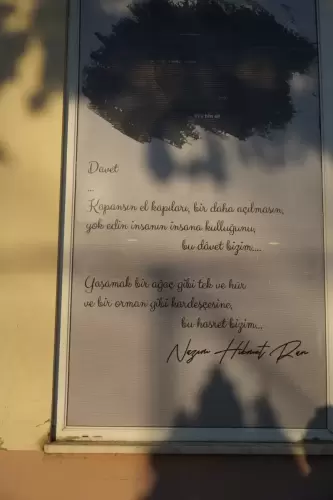 Davet
...
Kapansın el kapıları, bir daha açılmasın,
yok edin insanın insana kulluğunu,
bu dâvet bizim....
Yaşamak bir ağaç gibi tek ve hür
ve bir orman gibi kardeşçesine,
bu hasret bizim...
Nazım Hikmet Ran